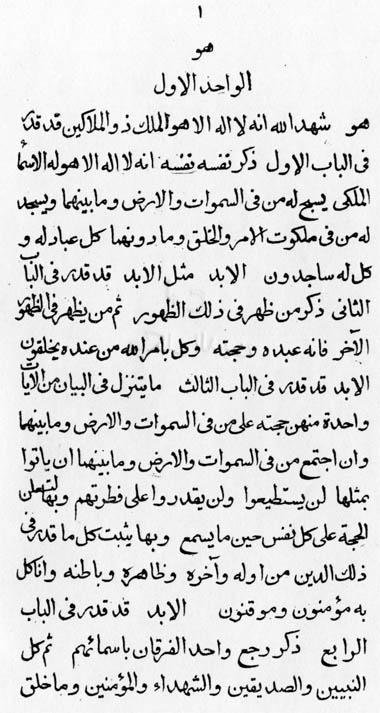 ١
هو
الواحد الاول
هو شهد الله انه لا اله الا هو الملك ذو الملاكين قد قدر
فى الباب الاول ذكر نفسه نفسه انه لا اله الا هو له الاسماء
الملكى يسبح له من فى السموات والارض وما بينهما ويسجد
له من فى ملكوت الامر والخلق وما دونهما كل عباد له و
كل له ساجدون الابد مثل الابد قد قدر فى الباب
الثانى ذكر من ظهر فى ذلك الظهور ثم من يظهر فى الظهور
الآخر فانه عبده وحجته وكل بامر الله من عنده يخلقون
الابد قد قدر فى الباب الثالث ما يتنزل فى البيان من الآيات
واحدة منهن حجته على من فى السموات والارض وما بينهما
وان اجتمع من فى السموات والارض وما بينهما ان ياتوا
بمثلها لن يستطيعوا ولن يقدروا على فطرتهم وبها
الحجة على كل نفس حين ما يسمع وبها يثبت كل ما قدر فى
ذلك الدين من اوله وآخره وظاهره وباطنه وانا كل
به مؤمنون وموقنون الابد قد قدر فى الباب
الرابع ذكر رجع واحد الفرقان باسمائهم ثم كل
النبيين والصديقين والشهداء والمؤمنين وما خلق